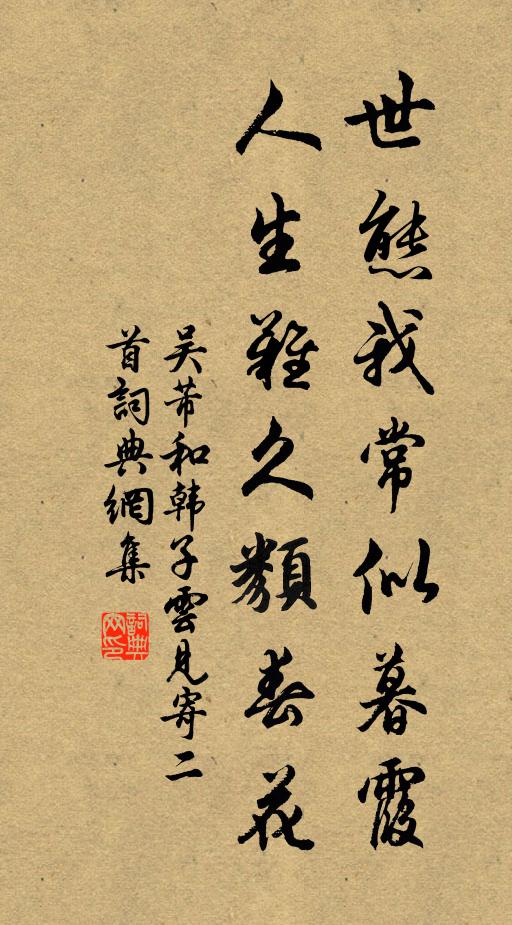 世態我常似暮霞
人生難久類春花
吴芾和韓子雲見寄二
首詞典網集
詞典
网印